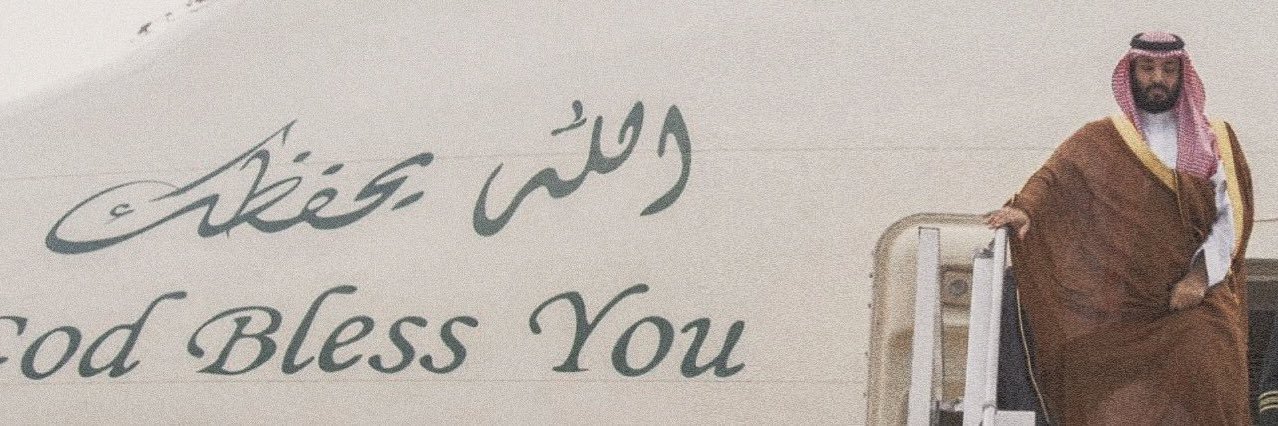 الله يحفظك
God Bless You